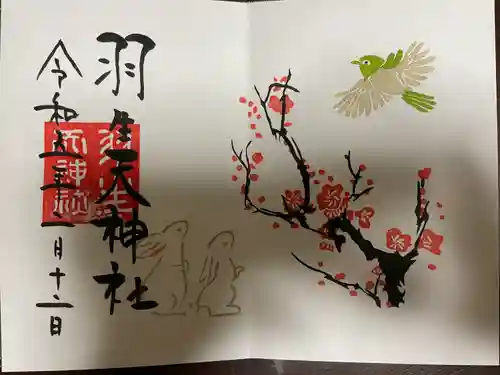 羽生天神社
令和五年二月十二日
羽生
天神社